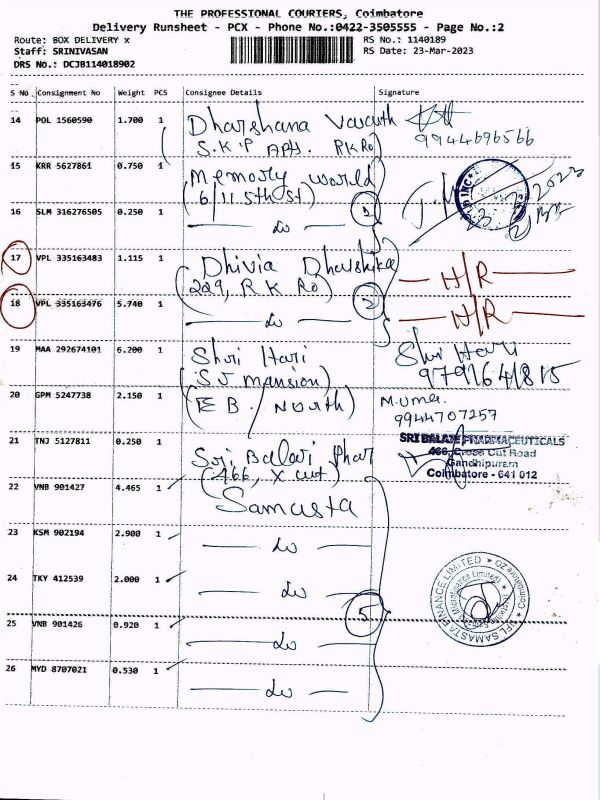 THE PROFESSIONAL COURIERS, Coimbatore
Delivery Runsheet - PCX - Phone No.:0422-3505555 - Page No.:2
Route: BOX DELIVERY x
RS No.: 1140189
Staff: SRINIVASAN
RS Date: 23-Mar-2023
DRS No.: DCJB114018902
S No Consignment No Weight PCS Consignee Details Signature
14 POL 1560590 1.700 1 Dharshana
S.K.P Apts. RK Ro
9944696566
15 KRR 5627861 0.750 1 Memory World
(6/11 5th St)
16 SLM 316276505 0.250 1 — do —
17 VPL 335163483 1.115 1 Dhivia Dharshika
(229, R K Ro) — H/R —
18 VPL 335163476 5.740 1 — do — — H/R —
19 MAA 292674101 6.200 1 Shri Hari Shri Hari
(SJ mansion)
20 GPM 5247738 2.150 1 (E B / North) M.Uma
9944707257
21 TNJ 5127811 0.250 1 Sri Balaji Phar
(466, X cut)
SRI BALAJI PHARMACEUTICALS
466, Cross Cut Road
Gandhipuram
Coimbatore - 641 012
22 VNB 901427 4.465 1 Samasta
23 KSM 902194 2.900 1 — do —
24 TKY 412539 2.000 1 — do —
5
25 VNB 901426 0.920 1 — do —
26 MYD 8707021 0.530 1 — do —
SAMASTA FINANCE LIMITED